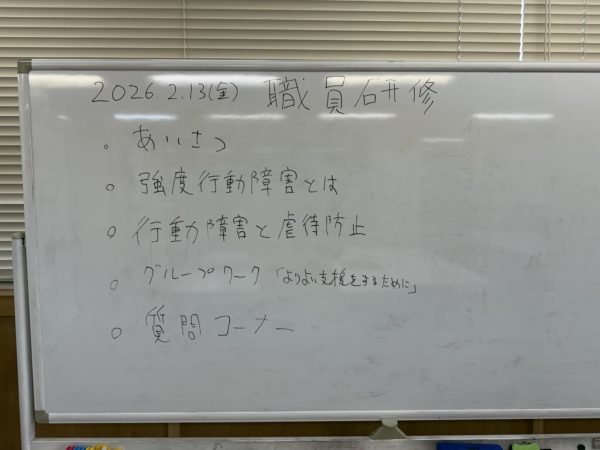 2026.2.13(金) 職員研修
。あいさつ
。強度行動障害とは
。行動障害と虐待防止
。グループワーク「よりよい支援をするために」
。質問コーナー